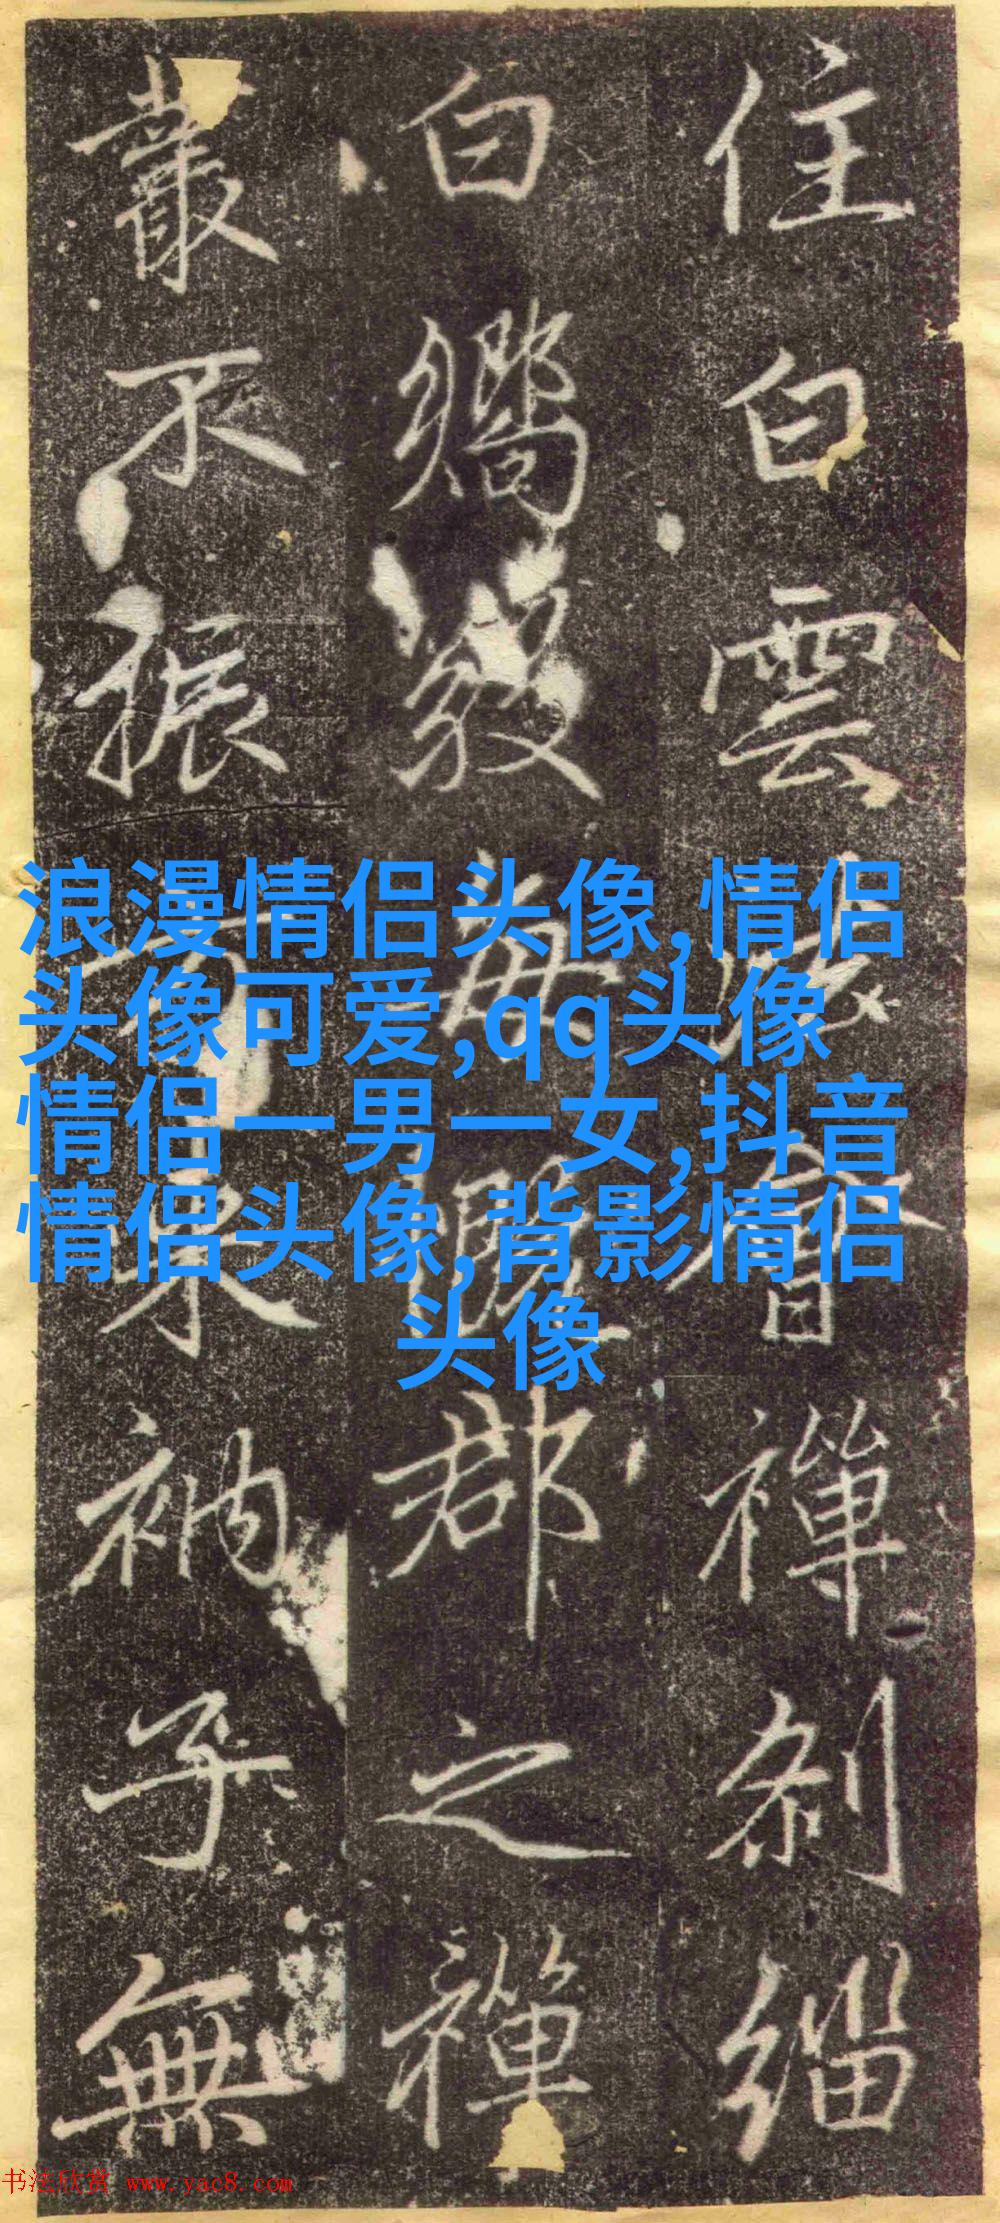 住白雲會禪剎緇
白嚮每郡之禪
叢不振方來衲子無
浪漫情侣头像,情侣
头像可爱,qq头像
情侣一男一女,抖音
情侣头像,背影情侣
头像
书法欣赏 www.yac8.com